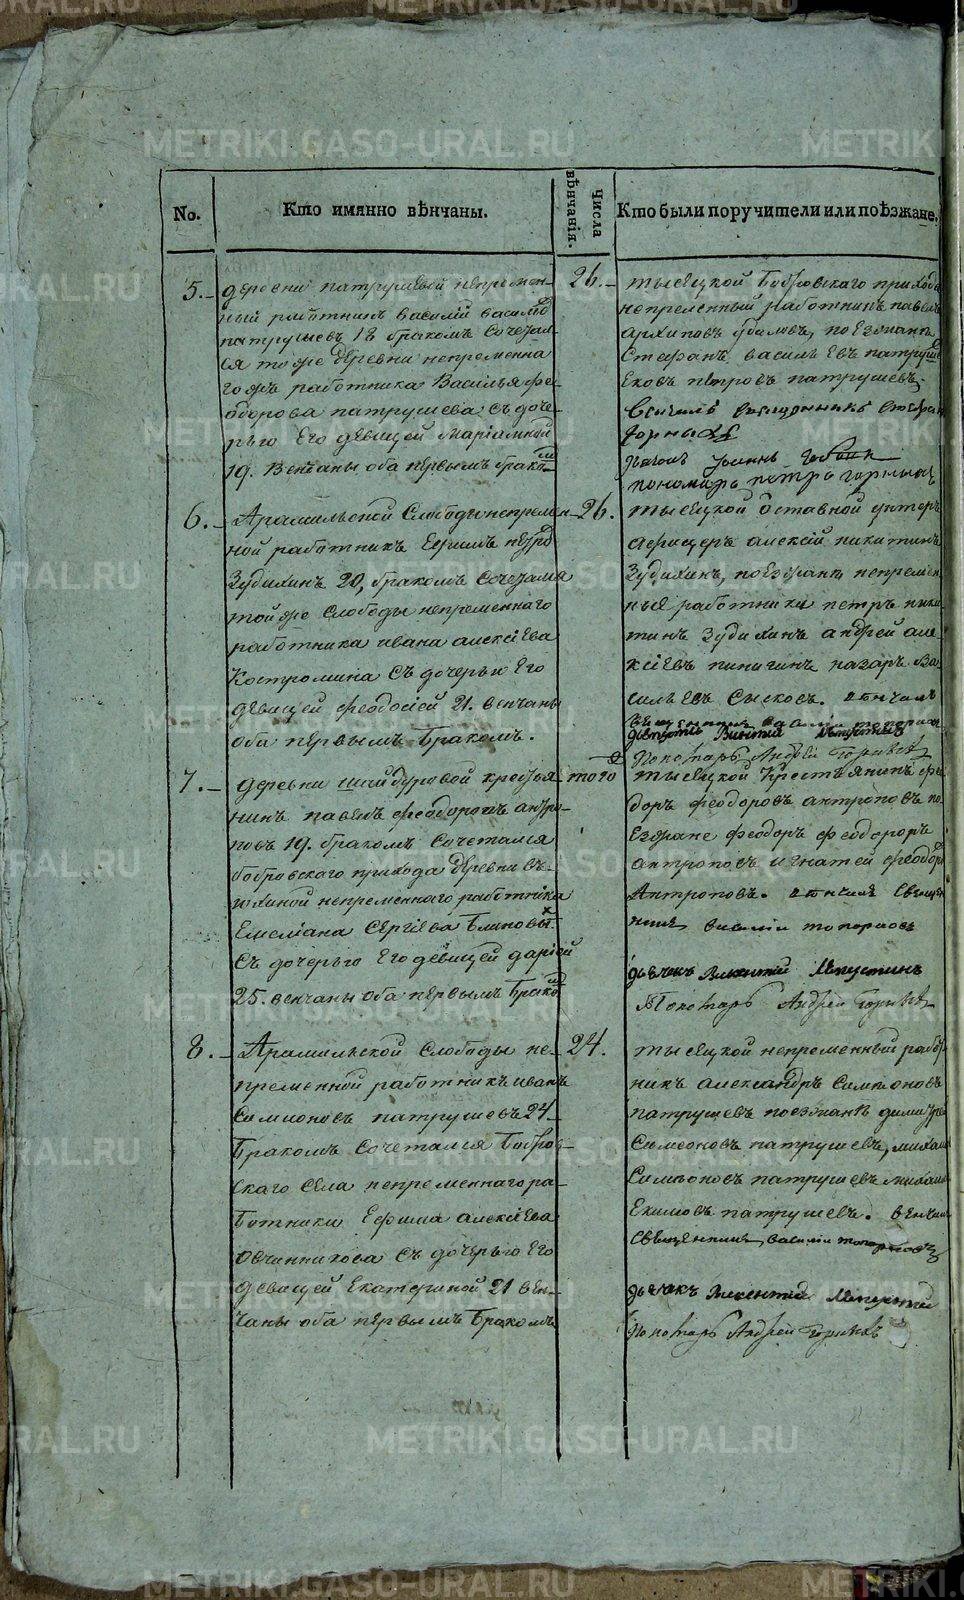 No.
Кто имянно вѣнчаны.
Числа вѣнчанія.
Кто были поручители или поѣзжане.
5.
деревни патрушевой непремѣн-
ный работникъ василій василье
патрушевъ 18 бракомъ сочетал-
ся тоже деревни непременна
гожъ работника Василья фе-
одорова патрушева съ доче-
рью Его девицей Маріамной
19. Венчаны оба первымъ брако
26.
тысецкой Бобровскаго прихода
непременный работникъ павелъ
архиповъ, поезжанъ
Стефанъ васильевъ патруш
петровъ патрушевъ.
Венчалъ священникъ
диконъ Іоаннъ
пономарь петръ
6.
Арамильской Слободы непремѣн
ной работникъ Ефимъ петро
Зудихинъ 20, бракомъ сочетался
той же слободы непременнаго
работника ивана алексіева
Костромина съ дочерью Его
девицей феодосіей 21. венчаны
оба первымъ бракомъ.
26.
тысецкой Отставной унтеръ
афицеръ алексій никитинъ
Зудихинъ, поезжанъ непремен
ные работники петръ ники-
тинъ Зудихинъ андрей але-
ксіевъ пинигинъ назаръ Ва-
сильевъ Сысковъ. венчалъ
священникъ василій топорковъ
Викентій
Пономарь Андрей
7.
деревни крестья
нинъ павелъ феодоровъ антро-
повъ 19. бракомъ сочетался
бобровскаго прихода деревни въ-
юхиной непременнаго работника
Емеліана Сергіева Блиновы
съ дочерью Его девицей дарьей
25. венчаны оба первымъ брако
того
тысецкой Крестьянинъ фе
доръ феодоровъ антроповъ по
Езжане феодоръ феодоровъ
антроповъ игнатей феодоро
Антроповъ. венчалъ Священ
никъ василій топорковъ
дьячекъ Викентій
Пономарь Андрей
8.
Арамильской слободы не-
пременной работникъ иванъ
Симионовъ патрушевъ 24
Бракомъ Сочетался Бобров-
скаго села непременнаго ра-
ботника Ефима алексіева
Овчинникова съ дочерью Его
девицей Екатериной 21 вен-
чаны оба первымъ Бракомъ
24.
тысецкой непременный рабо
никъ александръ Симионовъ
патрушевъ поезжанъ димитре
Симеоновъ патрушевъ, михаил
Симионовъ патрушевъ михаил
Екимовъ патрушевъ. венчалъ
Священникъ василій топорковъ
дьячекъ Викентій
Пономарь Андрей
METRIKI.GASO-URAL.RU